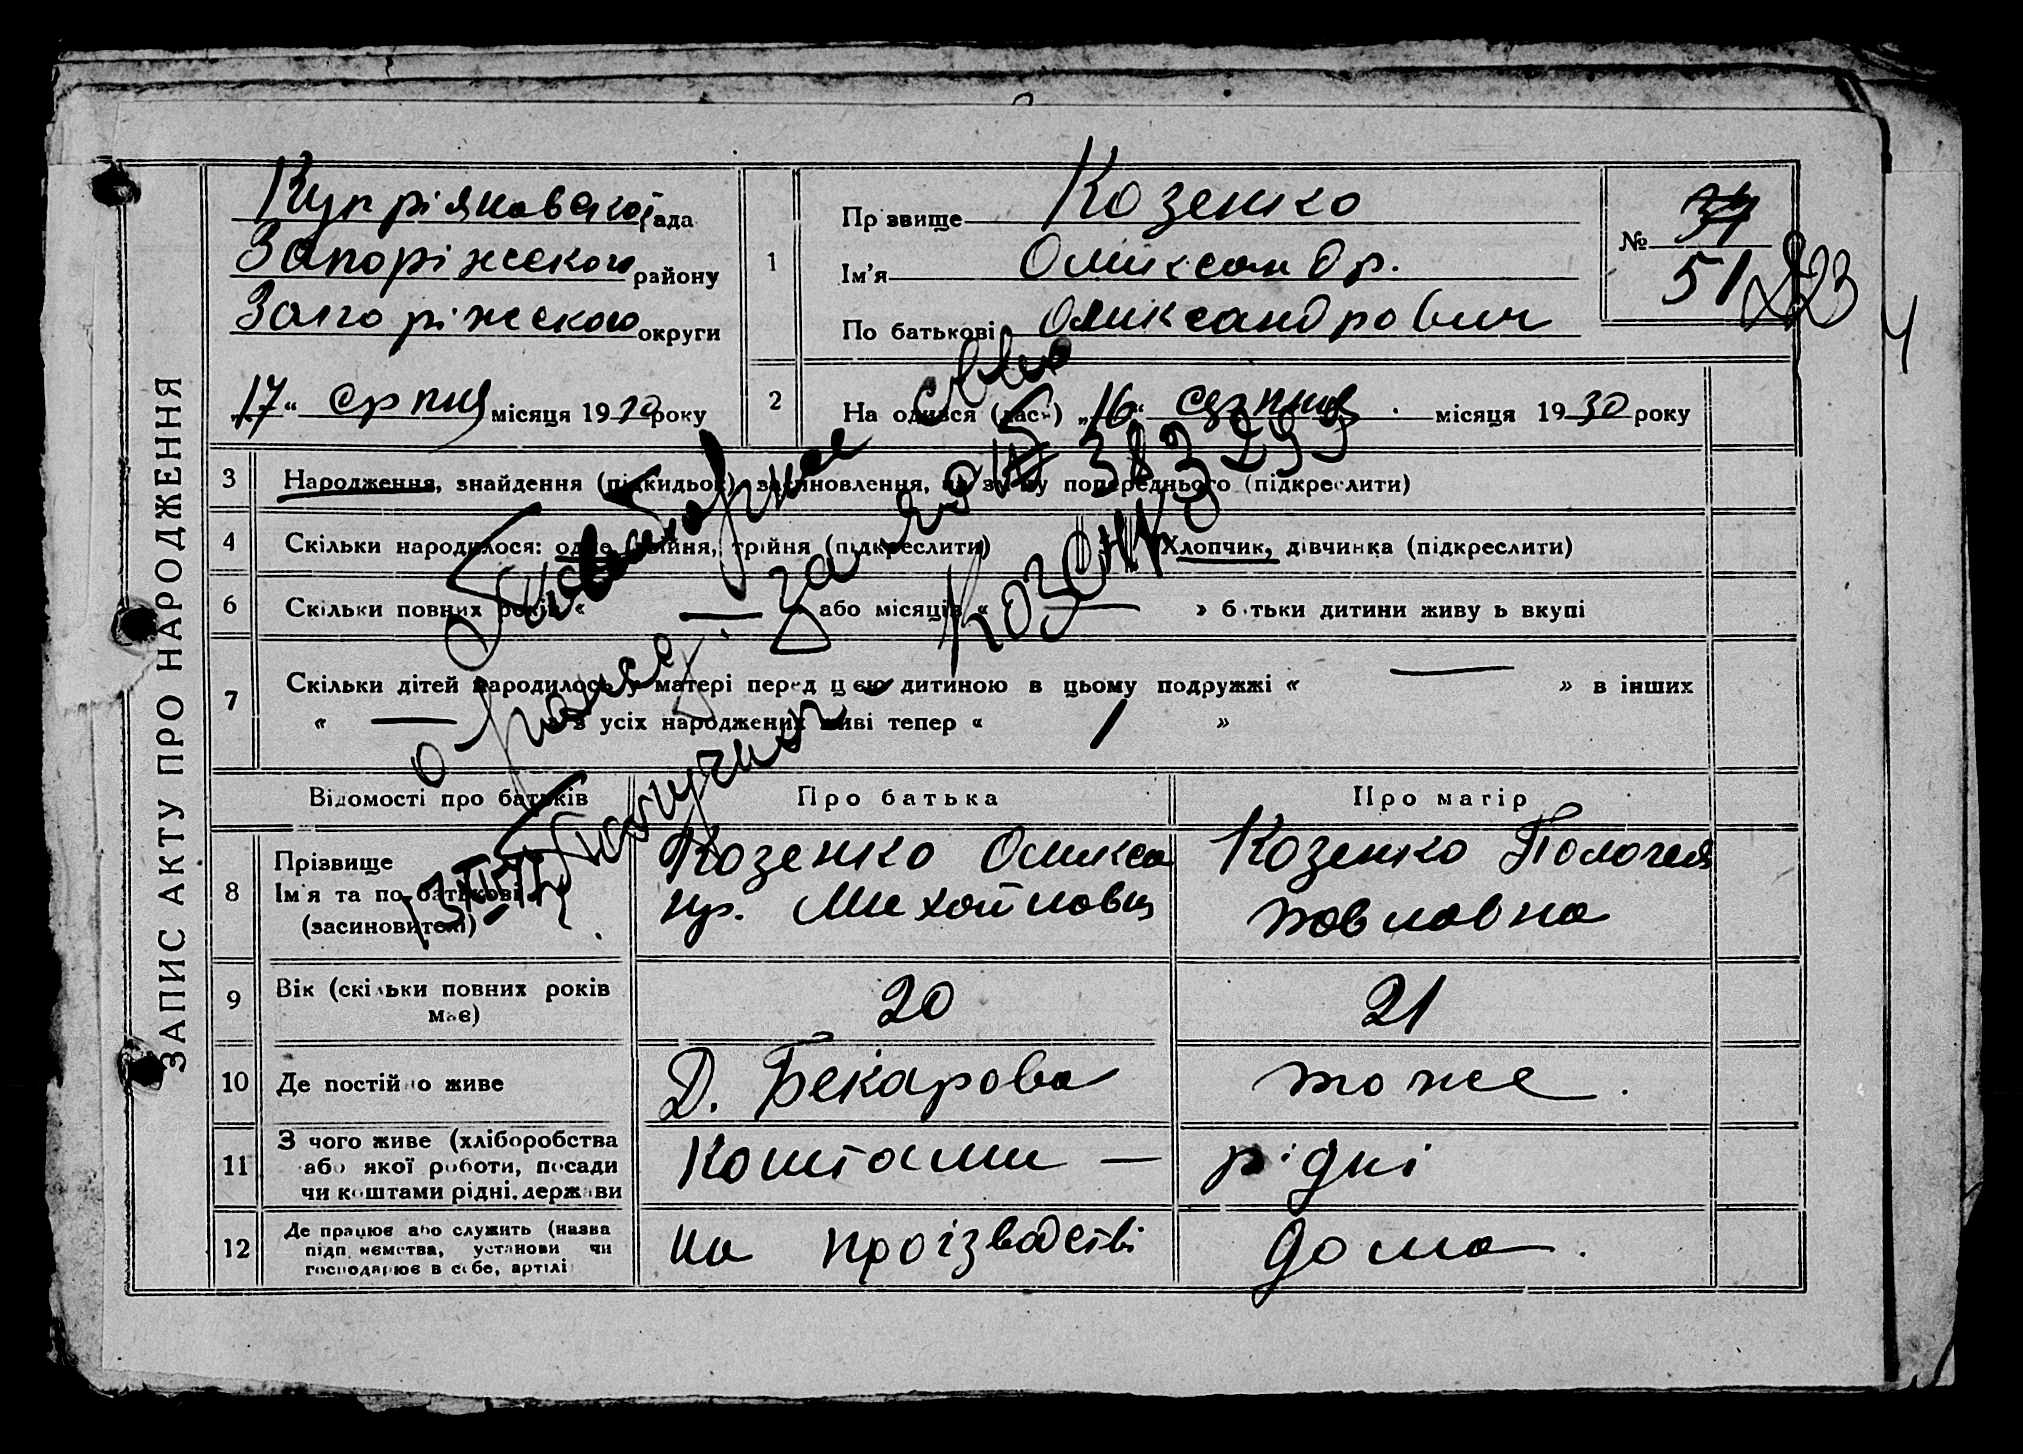 ЗАПИС АКТУ ПРО НАРОДЖЕННЯ
Купріяновскої рада
Запоріжского району
Запоріжского округи
„17“ серпня місяця 1930 року
1
Прізвище Козенко
Ім’я Оликсандр.
По батькові Оликсандрович
№ 37
51
223
4
2
На одився (лась) „16“ серпня місяця 1930 року
3 Народження, знайдення (підкидьок), засиновлення, на зміну попереднього (підкреслити)
4 Скільки народилося: одне, двійня, трійня (підкреслити)
Хлопчик, дівчинка (підкреслити)
6 Скільки повних років « — або місяців « — » батьки дитини живуть вкупі
7 Скільки дітей народилось у матері перед цією дитиною в цьому подружжі « — » в інших
« — » з усіх народжених живі тепер « 1 »
Повторное свид.
о браке
ЯЗ № 383293
Козенко
Получил
Відомості про батьків Про батька Про матір
8 Прізвище
Ім’я та по-батькові
(засиновителі)
Козенко Оликса
ндр. Михайловец
Козенко Пологея
Повловна
9 Вік (скільки повних років
має)
20 21
10 Де постійно живе Д. Бекарова тоже.
11 З чого живе (хліборобства
або якої роботи, посади
чи коштами рідні, держави
Коштами — рідні
12 Де працює або служить (назва
підприємства, установи чи
господарює в себе, артілі
на проізводстві дома.